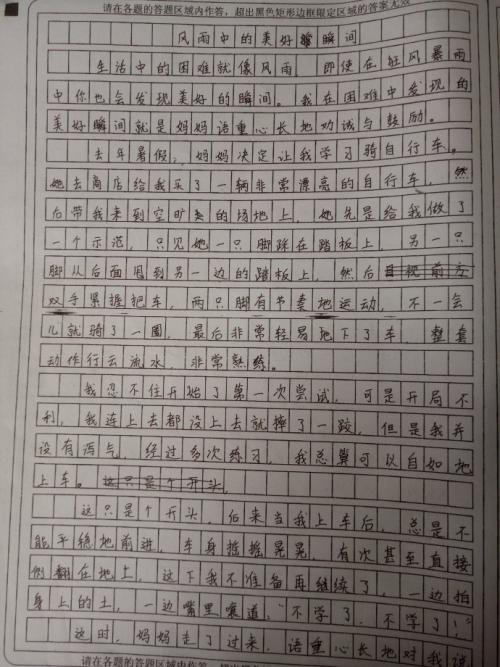 请在各题的答题区域内作答，超出黑色矩形边框限定区域的答案无效
风雨中的美好瞬间
生活中的困难就像风雨，即使在狂风暴雨
中你也会发现美好的瞬间。我在困难中发现的
美好瞬间就是妈妈语重心长地劝诫与鼓励。
去年暑假，妈妈决定让我学习骑自行车。
她去商店给我买了一辆非常漂亮的自行车，然
后带我来到空旷的场地上，她先是给我做了
一个示范，只见她一只脚踩在踏板上，另一只
脚从后面甩到另一边的踏板上，然后目视前方
双手紧握把车，两只脚有节奏地运动，不一会
儿就骑了一圈，最后非常轻易地下了车，整套
动作行云流水，非常熟练。
我忍不住开始了第一次尝试，可是开局不
利，我连上去都没上去就摔了一跤，但是我并
没有泻气，经过多次练习，我总算可以自如地
上车。这只是个开头，
这只是个开头，后来当我上车后，总是不
能平稳地前进，车身摇摇晃晃，有次甚至直接
倒翻在地上，这下我不准备再继续了，一边拍
身上的土，一边嘴里嚷道，“不学了，不学了！”
这时，妈妈走了过来，语重心长地对我说
请在各题的答题区域内作答，超出